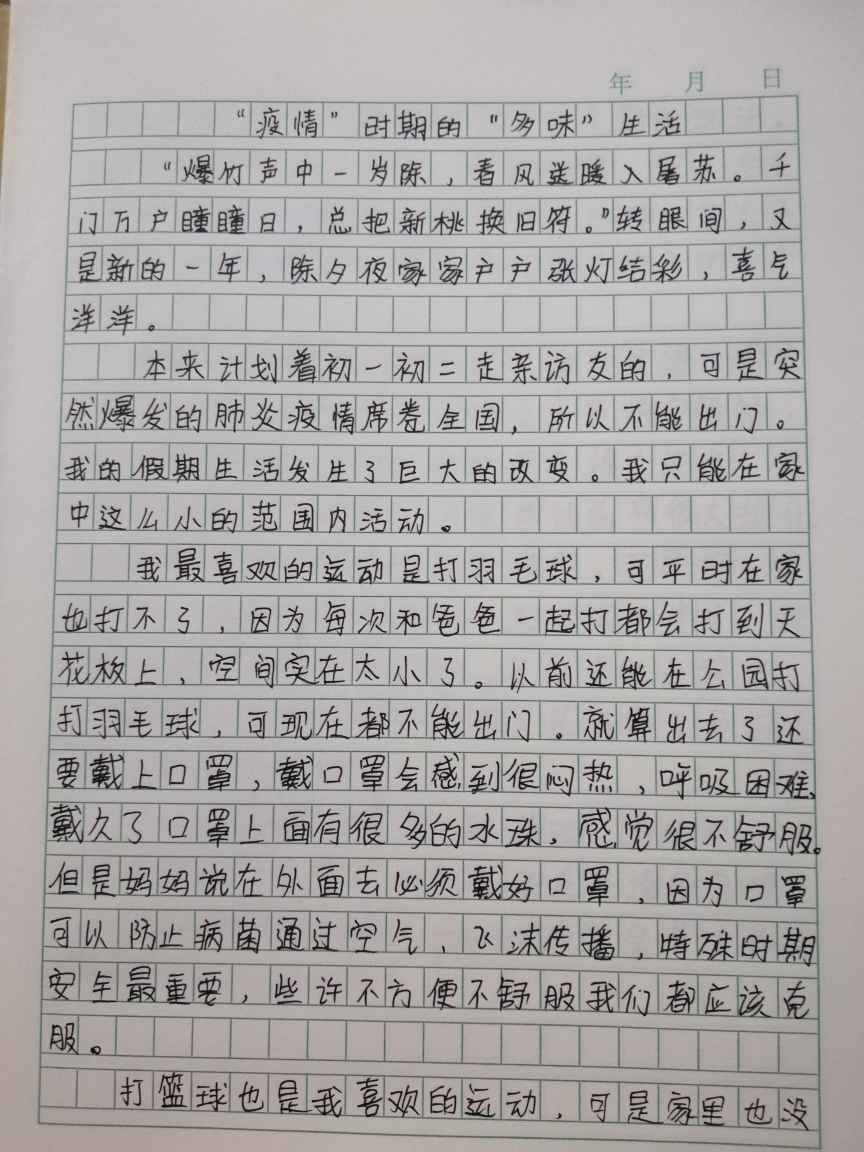 年 月 日
“疫情”时期的“多味”生活
“爆竹声中一岁除，春风送暖入屠苏。千
门万户瞳瞳日，总把新桃换旧符。”转眼间，又
是新的一年，除夕夜家家户户张灯结彩，喜气
洋洋。
本来计划着初一初二走亲访友的，可是突
然爆发的肺炎疫情席卷全国，所以不能出门。
我的假期生活发生了巨大的改变。我只能在家
中这么小的范围内活动。
我最喜欢的运动是打羽毛球，可平时在家
也打不了，因为每次和爸爸一起打都会打到天
花板上，空间实在太小了。以前还能在公园打
打羽毛球，可现在都不能出门。就算出去了还
要戴上口罩，戴口罩会感到很闷热，呼吸困难，
戴久了口罩上面有很多的水珠，感觉很不舒服。
但是妈妈说在外面去必须戴好口罩，因为口罩
可以防止病菌通过空气、飞沫传播，特殊时期
安全最重要，些许不方便不舒服我们都应该克
服。
打篮球也是我喜欢的运动，可是家里也没